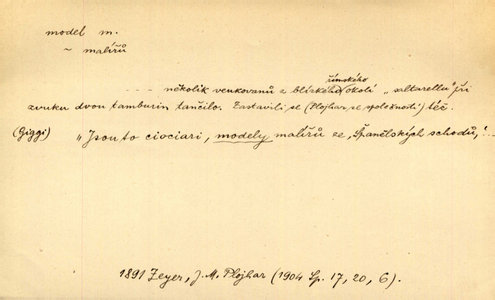 model m.
~ malířů
římského
- - - - několik venkovanů z blízkého okolí „saltarellu" při
zvuku dvou tamburin tančilo. Zastavili se (Plojhar se společností) též.
(Giggi) „Jsou to ciociari, modely malířů ze ‚Španělských schodů,‘ - -
1891 Zeyer, J. M. Plojhar (1904 Sp. 17, 20, 6).